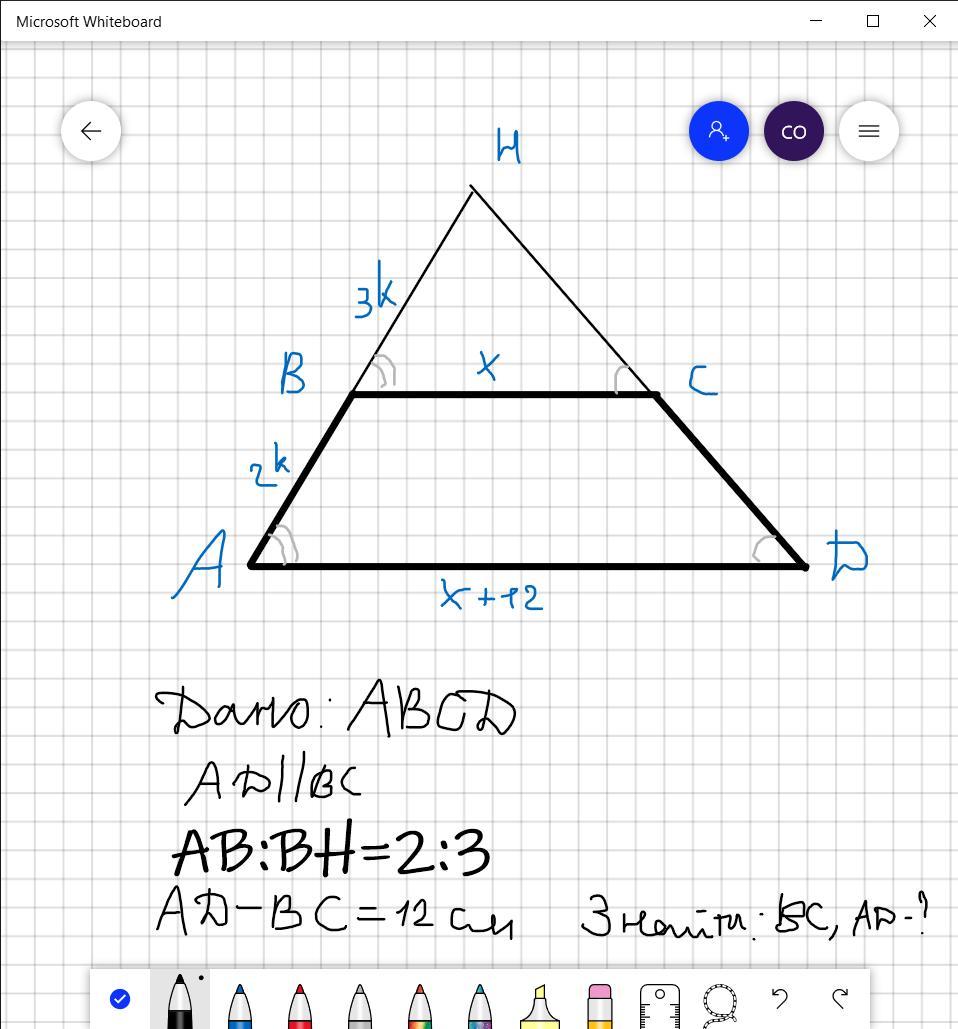 Microsoft Whiteboard
CO
H
3k
B
x
C
2k
A
D
x+12
Дано: ABCD
AD||BC
AB:BH=2:3
AD-BC=12 см
Знайти: BC, AD-?